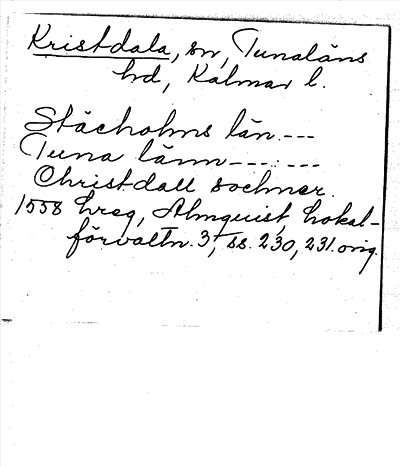 Kristdala, sn, Tunaläns
hd, Kalmar l.
Stächolms län.---
Tuna länn---:---
Christdall sochner.
1558 hreg, Almquist, Lokal-
förvaltn. 3, ss. 230, 231. orig.